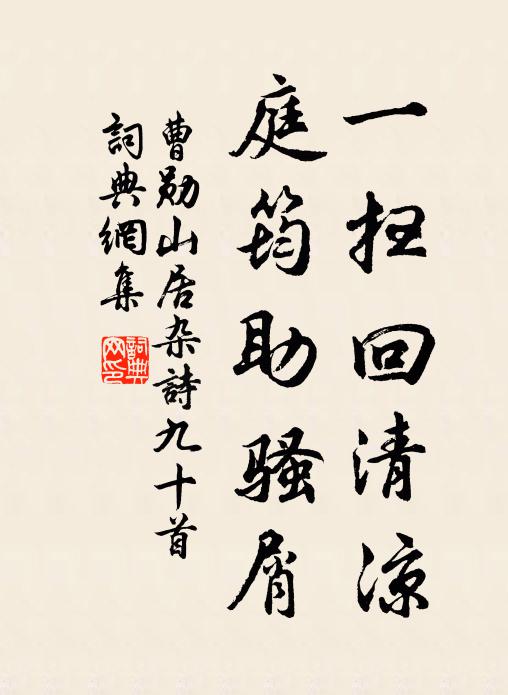 一扫回清凉
庭筠助骚屑
曹勋山居杂詩九十首
詞典網集
詞典網印